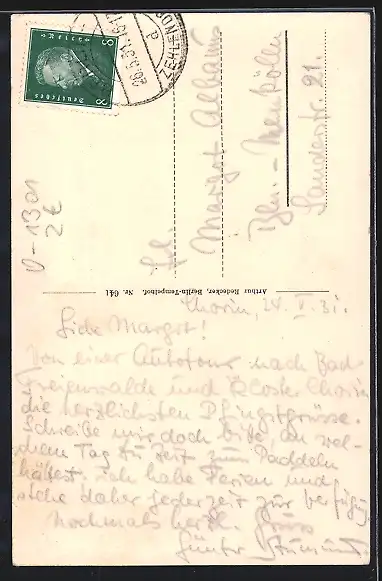 Chorin, 24. V. 31.
Liebe Margot!
Von einer Autotour nach Bad
Freienwalde und Kloster Chorin
die herzlichsten Pfingstgrüsse.
Schreibe mir doch bitte, an wel-
chem Tag du Zeit zum Paddeln
hättest. Ich habe Ferien und
stehe daher jederzeit zur Verfügung
Nochmals herzl. Gruss
Günter
Frl.
Margot
Bln.-Neukölln
Sanderstr. 21.
Arthur Redecker, Berlin-Tempelhof. Nr. 641
8 8
Deutsches
ZEHLENDO
26.5.31.
U-1301
2€